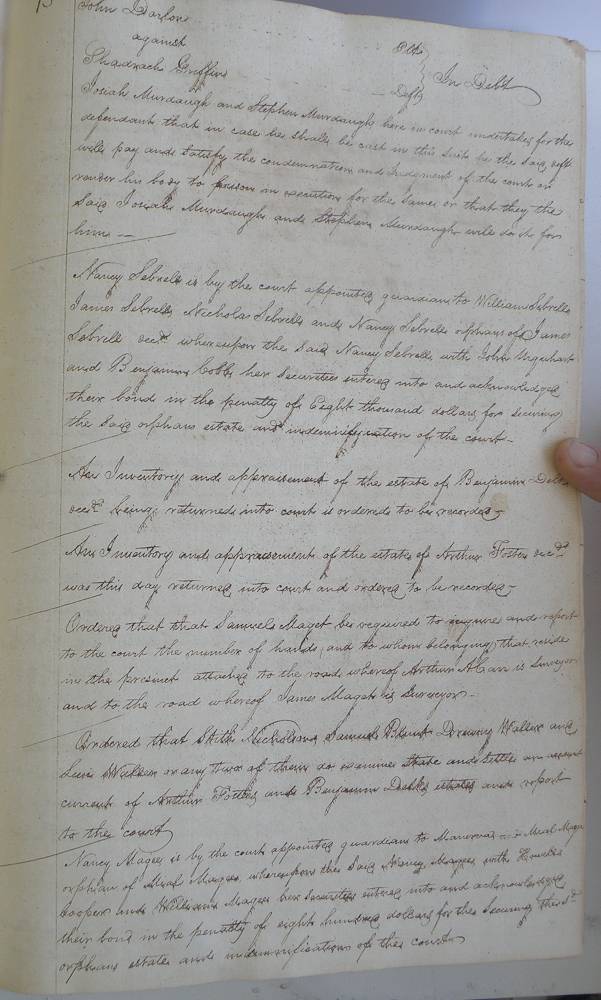 John Darlove
against Plt
Shadrach Griffin Deft In Debt
Josiah Murdaugh and Stephen Murdaugh here in court undertakes for the
defendant that in case he shall be cast in this suit he the said deft
will pay and satisfy the condemnation and Judgment of the court or
render his body to prison in execution for the same or that they the
said Josiah Murdaugh and Stephen Murdaugh will do it for
him —
Nancy Sebrell is by the court appointed guardian to William Sebrell
James Sebrell, Nicholas Sebrell and Nancy Sebrell orphans of James
Sebrell decd. whereupon the said Nancy Sebrell with John Urquhart
and Benjamin Cobb her securities entered into and acknowledged
their bond in the penalty of Eight thousand dollars for securing
the said orphans estate and indemnification of the court —
An Inventory and appraisement of the estate of Benjamin
decd. being returned into court is ordered to be recorded —
An Inventory and appraisement of the estate of Arthur Foster decd.
was this day returned into court and ordered to be recorded —
Ordered that that Samuel Maget be required to inquire and report
to the court the number of hands, and to whom belonging, that reside
in the precinct attached to the road whereof Arthur A Carr is Surveyor
and to the road whereof James Maget is Surveyor —
Ordered that Skith Nicholson, Samuel Blunt Drewry Waller and
Levi Waller or any two of them do examine state and settle an account
current of Arthur Foster and Benjamin estates and report
to the court
Nancy Magee is by the court appointed guardian to Magee
orphan of Magee, whereupon the said Nancy Magee with
Cooper and William Magee her securities entered into and acknowledged
their bond in the penalty of eight hundred dollars for the securing the sd.
orphans estate and indemnification of the court